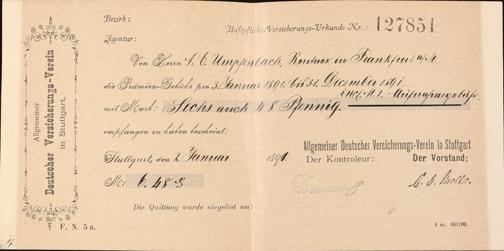 Allgemeiner
Deutscher Versicherungs-Verein
in Stuttgart.
Bezirk:
Haftpflicht-Versicherungs-Urkunde No: 127851
Agentur:
Von Herrn S. E. Umpfenbach, Rentner in Frankfurt a/M.
die Prämien-Gebühr pro 3. Januar 1891 bis 31. December 1891
incl. M. 1.-
mit Mark: Sechs auch 48 Pfennig.
empfangen zu haben bescheint:
Allgemeiner Deutscher Versicherungs-Verein in Stuttgart
Stuttgart, den 2. Januar 1891
Der Kontroleur: Der Vorstand;
M: 6.48
Die Quittung wurde eingelöst am:
F. N. 5 a.